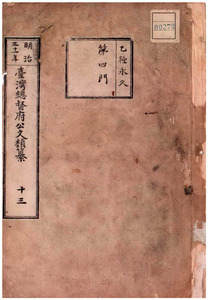 00273
乙種永久
第四門
明治
三十一年
臺灣總督府公文類纂
十三